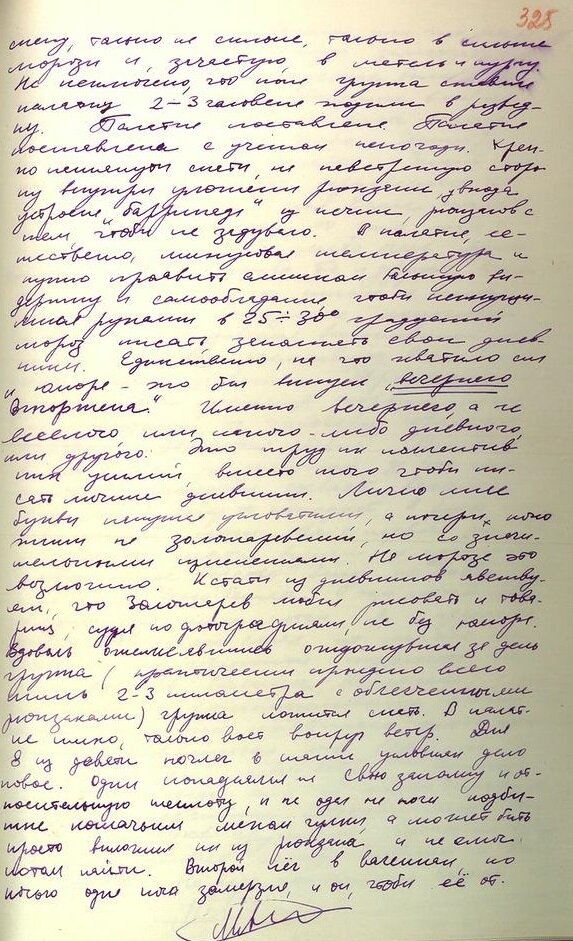 325
смену, только не сильные, только в сильные
морозы и, зачастую, в метель и пургу.
Не исключено, что пока группа ставила
палатку 2-3 человека ходили в развед-
ку. Палатка поставлена. Палатка
поставлена с учётом непогоды. Креп-
ко натянуты скаты, на неветренную сторо-
ну внутри уложены рюкзаки, у входа
устроена "баррикада" из печки, рюкзаков с
тем, чтобы не задувало. В палатке, ес-
тественно, минусовая температура и
нужно проявить слишком большую вы-
держку и самообладание, чтобы
руками в 25÷30° градусный
мороз писать заполнять свои днев-
ники. Единственно, на что хватило сил
и юмора - это был выпуск "вечернего
Отортена". Именно вечернего, а не
веселого или какого-либо дневного
или другого. Это труд их коллектив
ных усилий, вместо того чтобы пи-
сать личные дневники. Лично мне
буквы кажутся угловатыми, а почерк, конх
жим на золотаревский, но со значи-
тельными изменениями. На морозе это
возможно. Кстати из дневников явству-
ет, что Золотарев любил рисовать и това-
рищ, судя по фотографиям, не без юмора.
Вдоволь отдохнувшая за день
группа (практически пройдено всего
лишь 2-3 километра с облегченными
рюкзаками) группа ложится спать. В палат-
ке тихо, только воет вокруг ветер. Для
8 из девяти ночлег в таких условиях дело
новое. Одни понадеялся на свою закалку и от-
носительную теплоту, и не одел на ноги подби-
тые кошачьим мехом чулки, а может быть
просто выложил их из рюкзака и не смог
потом найти. Второй лёг в валенках, но
ночью одна нога замерзла, и он, чтобы её от-